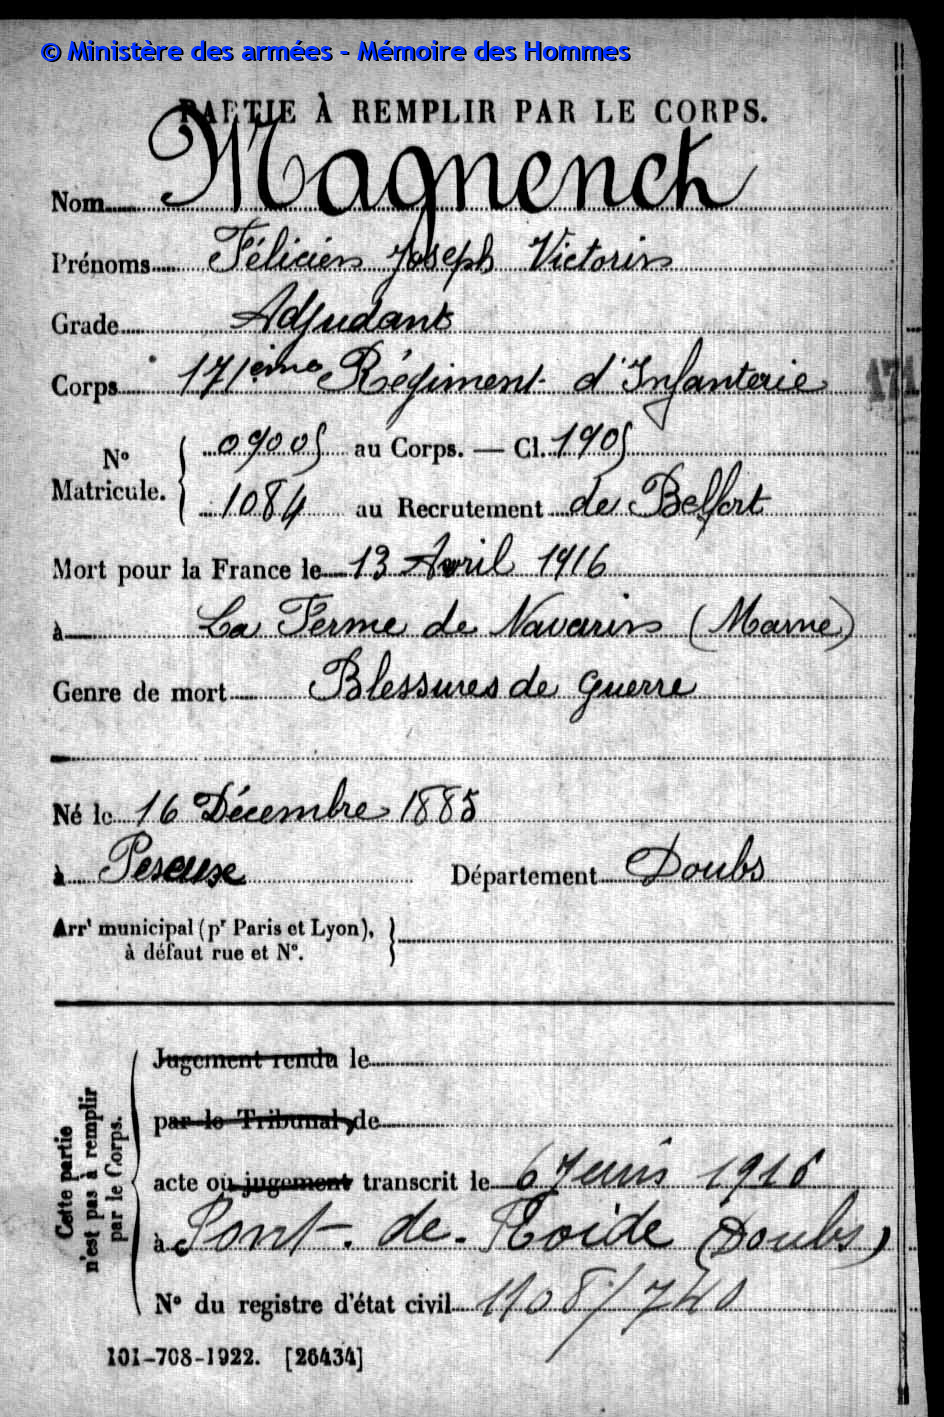 © Ministère des armées - Mémoire des Hommes
PARTIE À REMPLIR PAR LE CORPS.
Nom Magnenet
Prénoms Félicien Joseph Victorin
Grade Adjudant
Corps 171ème Régiment d'Infanterie
171
N° Matricule. 09005 au Corps. — Cl. 1905
1084 au Recrutement de Belfort
Mort pour la France le 13 Avril 1916
à La Ferme de Navarin (Marne)
Genre de mort Blessures de guerre
Né le 16 Décembre 1885
à Peseux Département Doubs
Arrt municipal (pr Paris et Lyon), à défaut rue et N°.
Cette partie n'est pas à remplir par le Corps.
Jugement rendu le
par le Tribunal de
acte ou jugement transcrit le 6 Juin 1916
à Pont-de-Roide (Doubs)
N° du registre d'état civil 1108/740
101-708-1922. [26434]